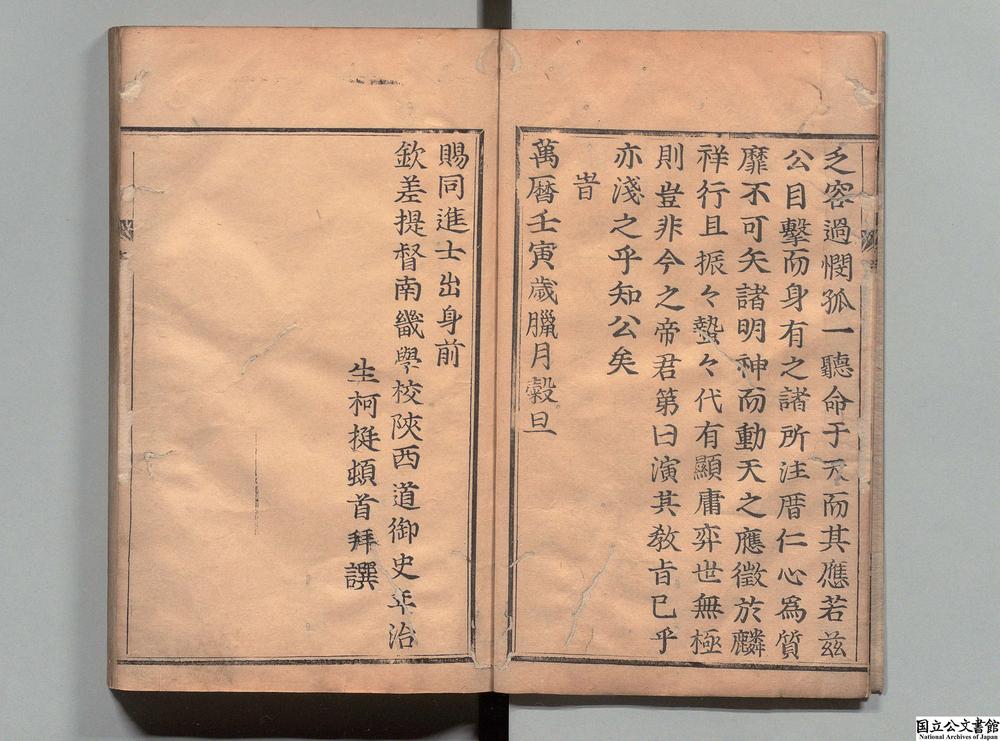 乏容過憫孤一聽命于天而其應若兹
公目擊而身有之諸所注厝仁心爲質
靡不可矢諸明神而動天之應徵於麟
祥行且振々蟄々代有顯庸弈世無極
則豈非今之帝君第曰演其教㫖已乎
亦淺之乎知公矣
旹
萬曆壬寅歲臘月穀旦
賜同進士出身前
欽差提督南畿學校陝西道御史年治
生柯挺頓首拜譔
国立公文書館
National Archives of Japan